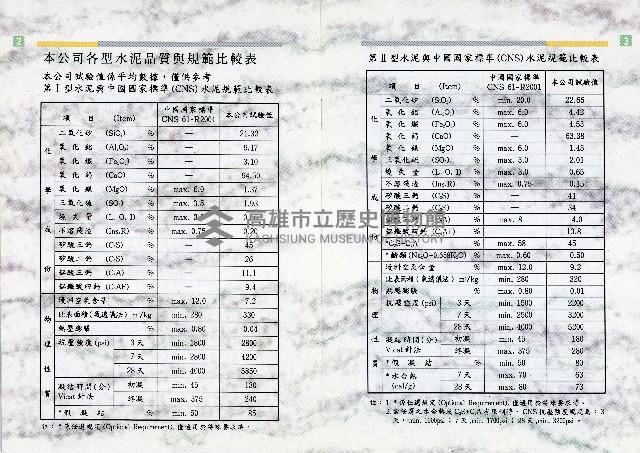 2
本公司各型水泥品質與規範比較表
本公司試驗值係平均數據，僅供參考
第Ⅰ型水泥與中國國家標準(CNS)水泥規範比較表
項 目 (Item) 中國國家標準 CNS 61-R2001 本公司試驗值
化學成份
二氧化矽 (SiO₂) % — 21.32
氧化鋁 (Al₂O₃) % — 5.17
氧化鐵 (Fe₂O₃) % — 3.10
氧化鈣 (CaO) % — 64.50
氧化鎂 (MgO) % max. 6.0 1.37
三氧化硫 (SO₃) % max. 3.5 1.93
燒失量 (L. O. I) % max. 3.0
不溶殘渣 (Ins.R) % max. 0.75 0.20
矽酸三鈣 (C₃S) % — 45
矽酸二鈣 (C₂S) % — 26
鋁酸三鈣 (C₃A) % — 11.1
鋁鐵酸四鈣 (C₄AF) % — 9.4
物理性質
墁料空氣含量 % max. 12.0 7.2
比表面積(氣透儀法) m²/kg min. 280 330
熱壓膨脹 % max. 0.80 0.04
抗壓強度 (psi) 3天 min. 1800 2800
7天 min. 2800 4200
28天 min. 4000 5850
凝結時間(分) Vicat針法 初凝 min. 45 130
終凝 max. 375 240
*假凝結 % min. 50 85
註：*係任選規定(Optional Requirement), 僅適用於特殊要求時。
3
第Ⅱ型水泥與中國國家標準(CNS)水泥規範比較表
項 目 (Item) 中國國家標準 CNS 61-R2001 本公司試驗值
化學成份
二氧化矽 (SiO₂) % min. 20.0 22.55
氧化鋁 (Al₂O₃) % max. 6.0 4.42
氧化鐵 (Fe₂O₃) % max. 6.0 4.53
氧化鈣 (CaO) % — 63.38
氧化鎂 (MgO) % max. 6.0 1.45
三氧化硫 (SO₃) % max. 3.0 2.01
燒失量 (L. O. I) % max. 3.0 0.65
不溶殘渣 (Ins.R) % max. 0.75 0.15
矽酸三鈣 (C₃S) % — 41
矽酸二鈣 (C₂S) % — 34
鋁酸三鈣 (C₃A) % max. 8 4.0
鋁鐵酸四鈣 (C₄AF) % — 13.8
C₃S+C₃A % max. 58 45
*鹼類 (Na₂O+0.658K₂O) % max. 0.60 0.50
物理性質
墁料空氣含量 % max. 12.0 9.2
比表面積(氣透儀法) m²/kg min. 280 320
熱壓膨脹 % max. 0.80 0.01
抗壓強度 (psi) 3天 min. 1500 2200
7天 min. 2500 3200
28天 min. 4000 5200
凝結時間(分) Vicat針法 初凝 min. 45 180
終凝 max. 375 280
*假凝結 % min. 50 80
*水合熱 (cal/g) 7天 max. 70 63
28天 max. 80 73
註：1. *係任選規定(Optional Requirement), 僅適用於特殊要求時。
高雄市立歷史博物館
KAOHSIUNG MUSEUM OF HISTORY